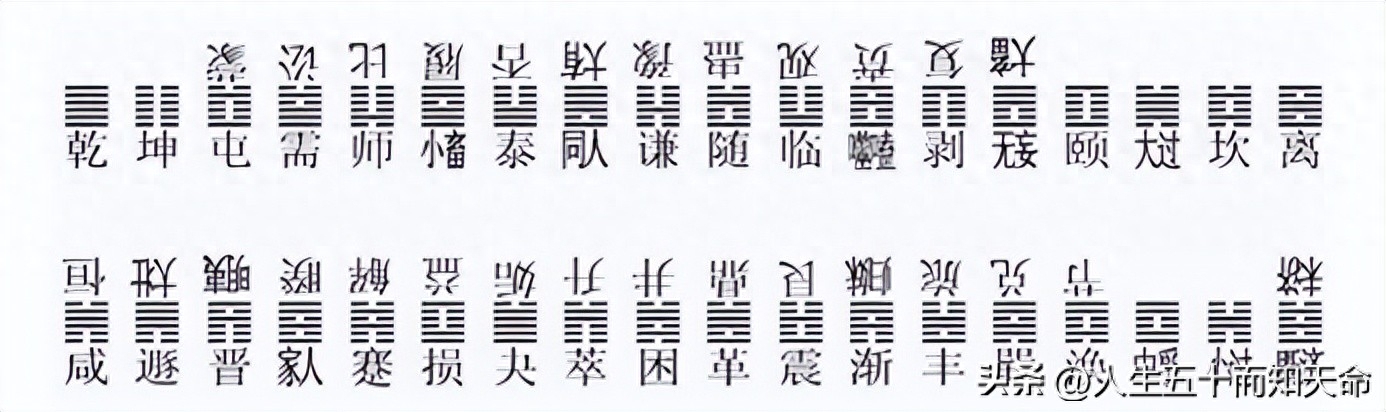 蒙 讼 比 履 否 大有 豫 蛊 观 贲 复 大畜
乾 坤 屯 需 师 小畜 泰 同人 谦 随 临 噬嗑 剥 无妄 颐 大过 坎 离
恒 大壮 明夷 睽 解 益 姤 升 井 鼎 艮 归妹 旅 兑 节 未济
咸 遯 晋 家人 蹇 损 夬 萃 困 革 震 渐 丰 巽 涣 中孚 小过 既济
头条 @人生五十而知天命